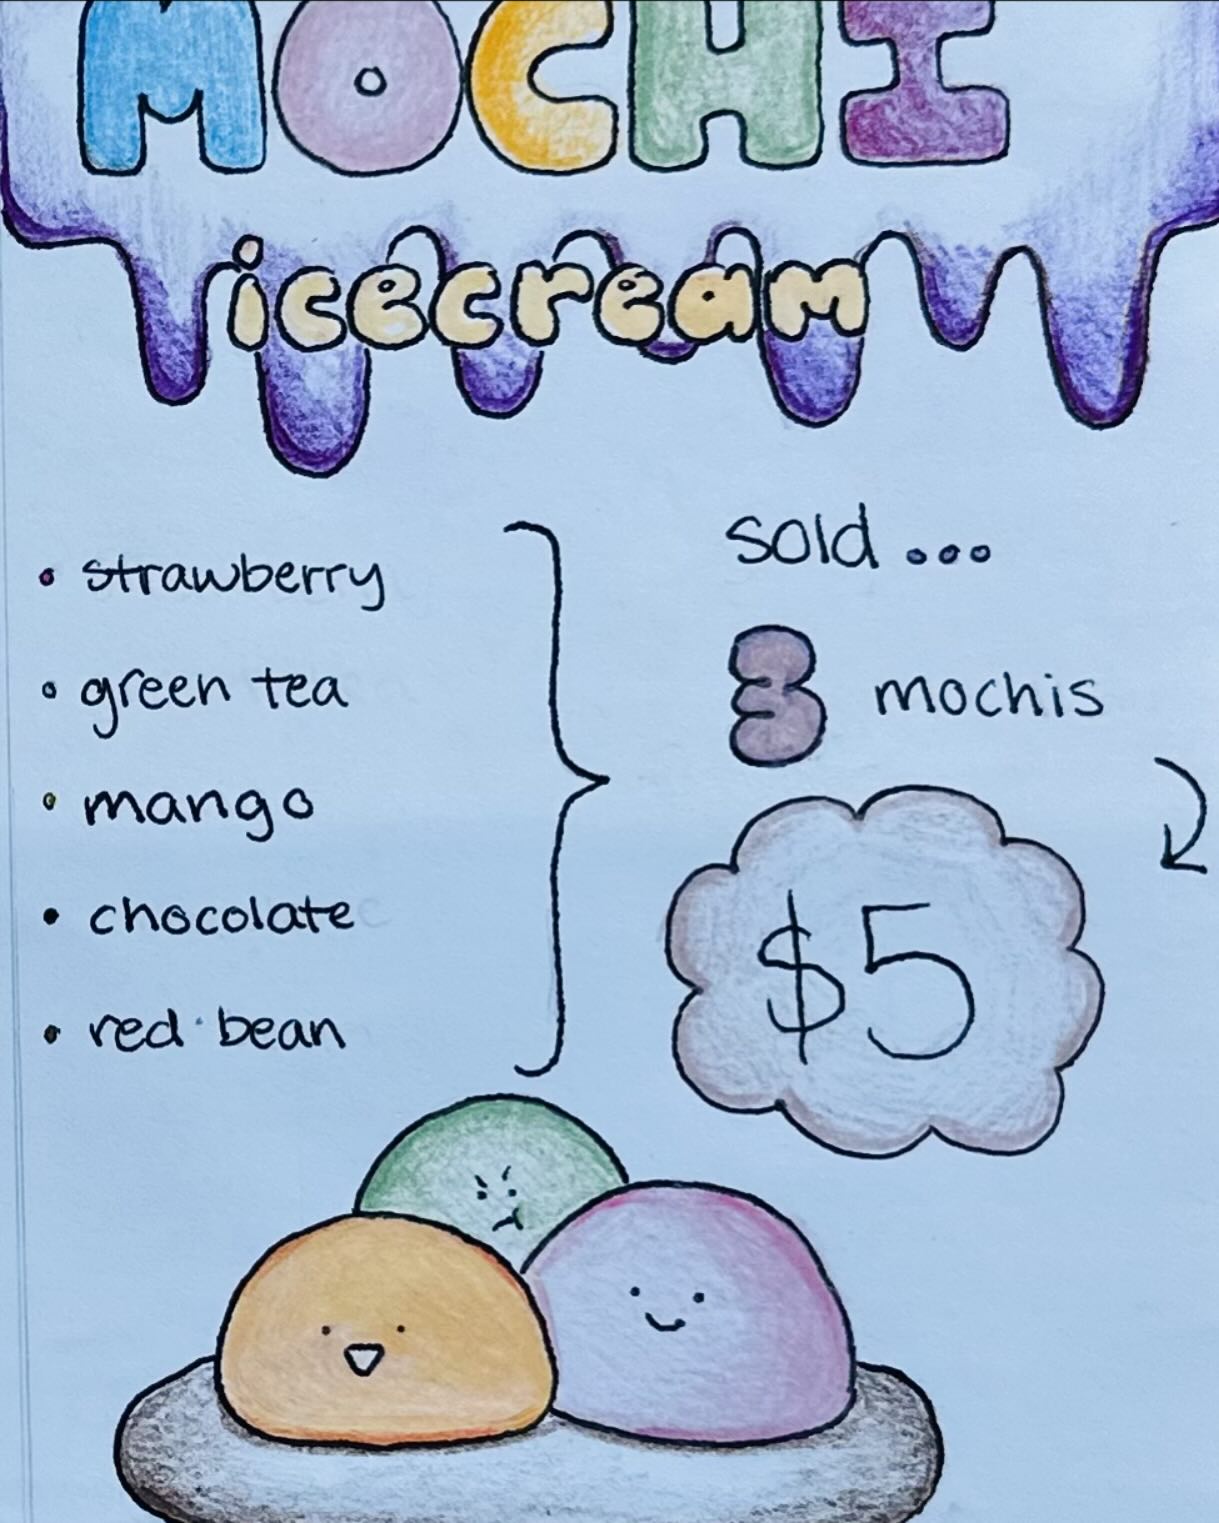 MOCHI
icecream
• strawberry
• green tea
• mango
• chocolate
• red bean
sold ...
3 mochis
$5